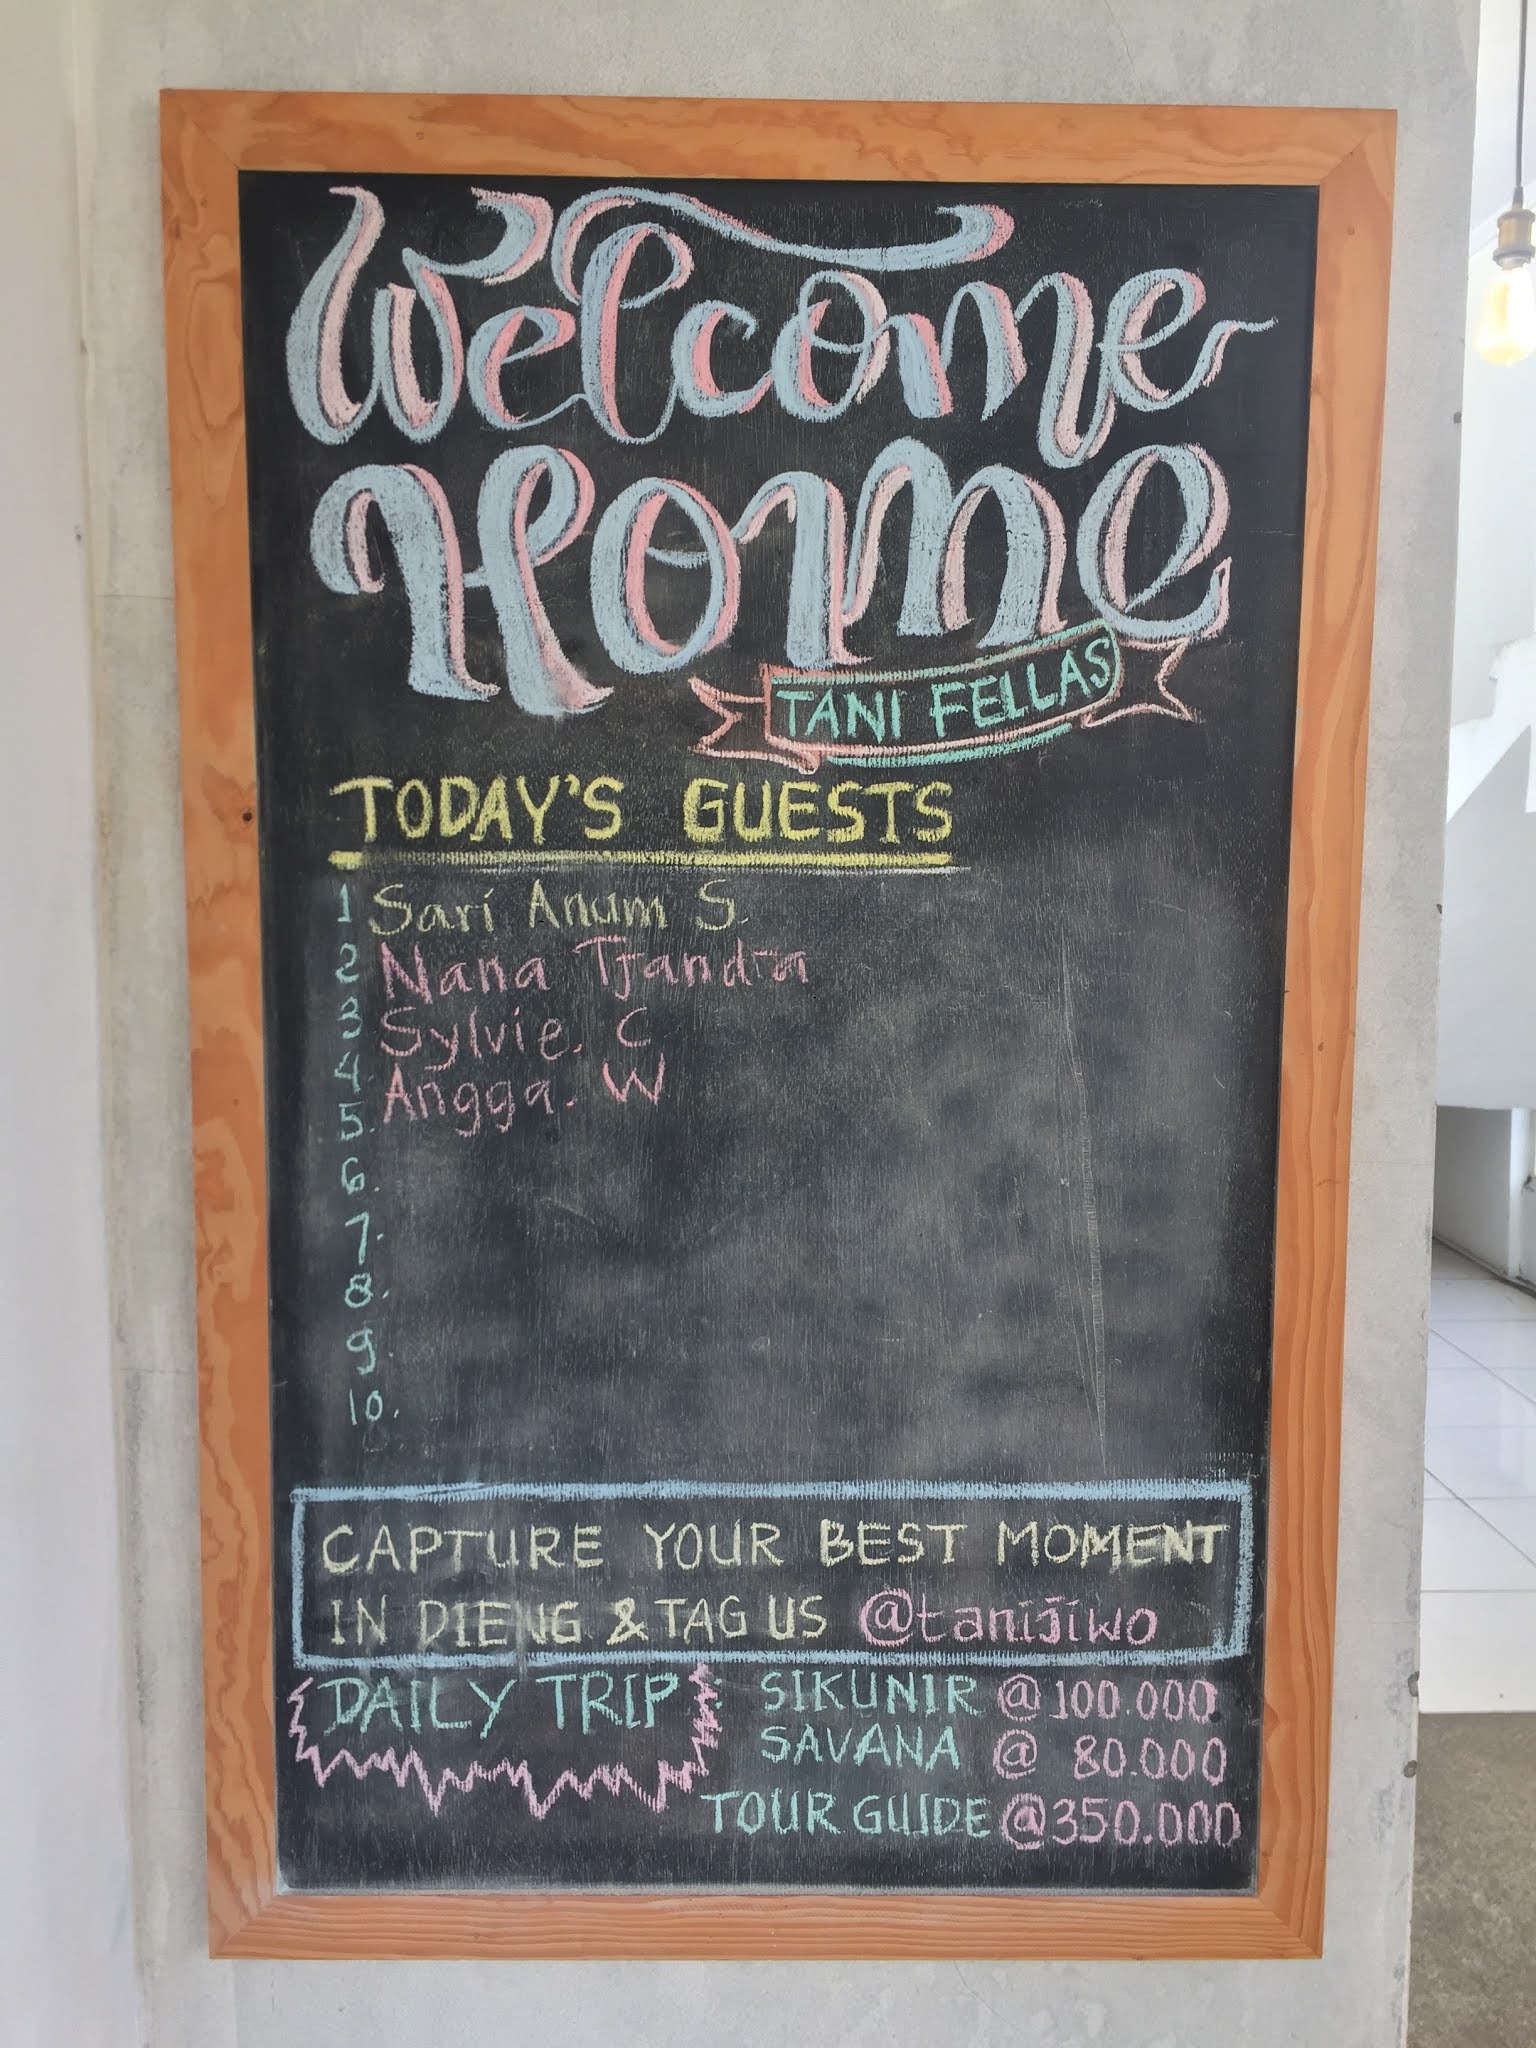 Welcome
Home
TANI FELLAS
TODAY'S GUESTS
1 Sari Anum S.
2 Nana Tjandra
3 Sylvie. C
4 Angga. W
5.
6.
7.
8.
9.
10.
CAPTURE YOUR BEST MOMENT
IN DIENG & TAG US @tanijiwo
DAILY TRIP : SIKUNIR @ 100.000
SAVANA @ 80.000
TOUR GUIDE @ 350.000